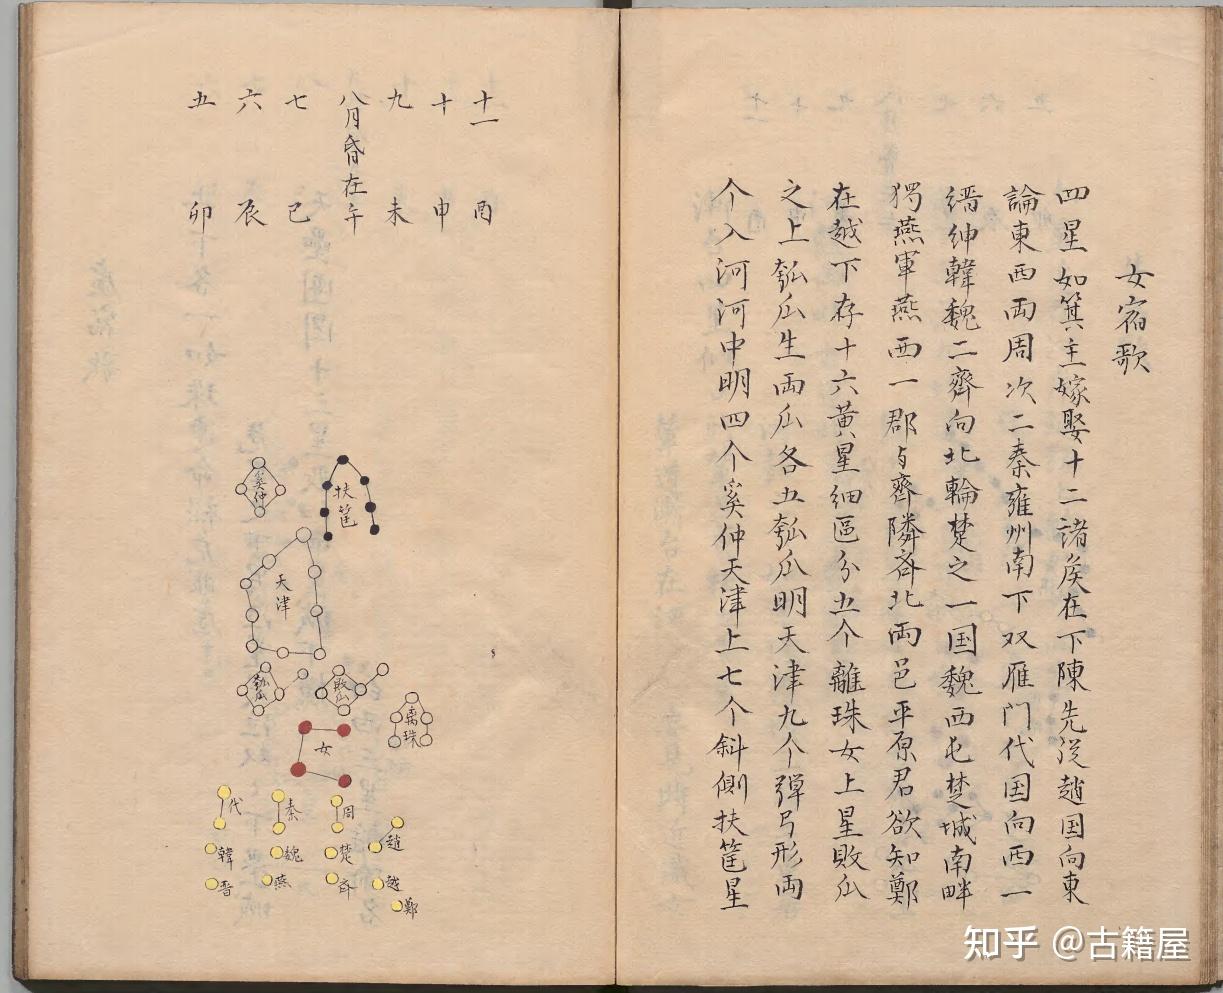 女宿歌
四星如箕主嫁娶十二諸侯在下陳先従趙国向東
論東西両周次二秦雍州南下双雁门代国向西一
縉紳韓魏二齊向北輪楚之一国魏西屯楚城南畔
獨燕軍燕西一郡与齊隣斉北両邑平原君欲知鄭
在越下存十六黄星細區分五个離珠女上星敗瓜
之上瓠瓜生両瓜各五瓠瓜明天津九个弾弓形両
个入河河中明四个奚仲天津上七个斜側扶筐星
十一 酉
十 申
九 未
八月昏在午
七 巳
六 辰
五 卯
扶筐
奚仲
天津
瓠瓜
敗瓜
离珠
女
代
秦
周
趙
韓
魏
楚
越
晋
燕
斉
鄭
知乎 @古籍屋